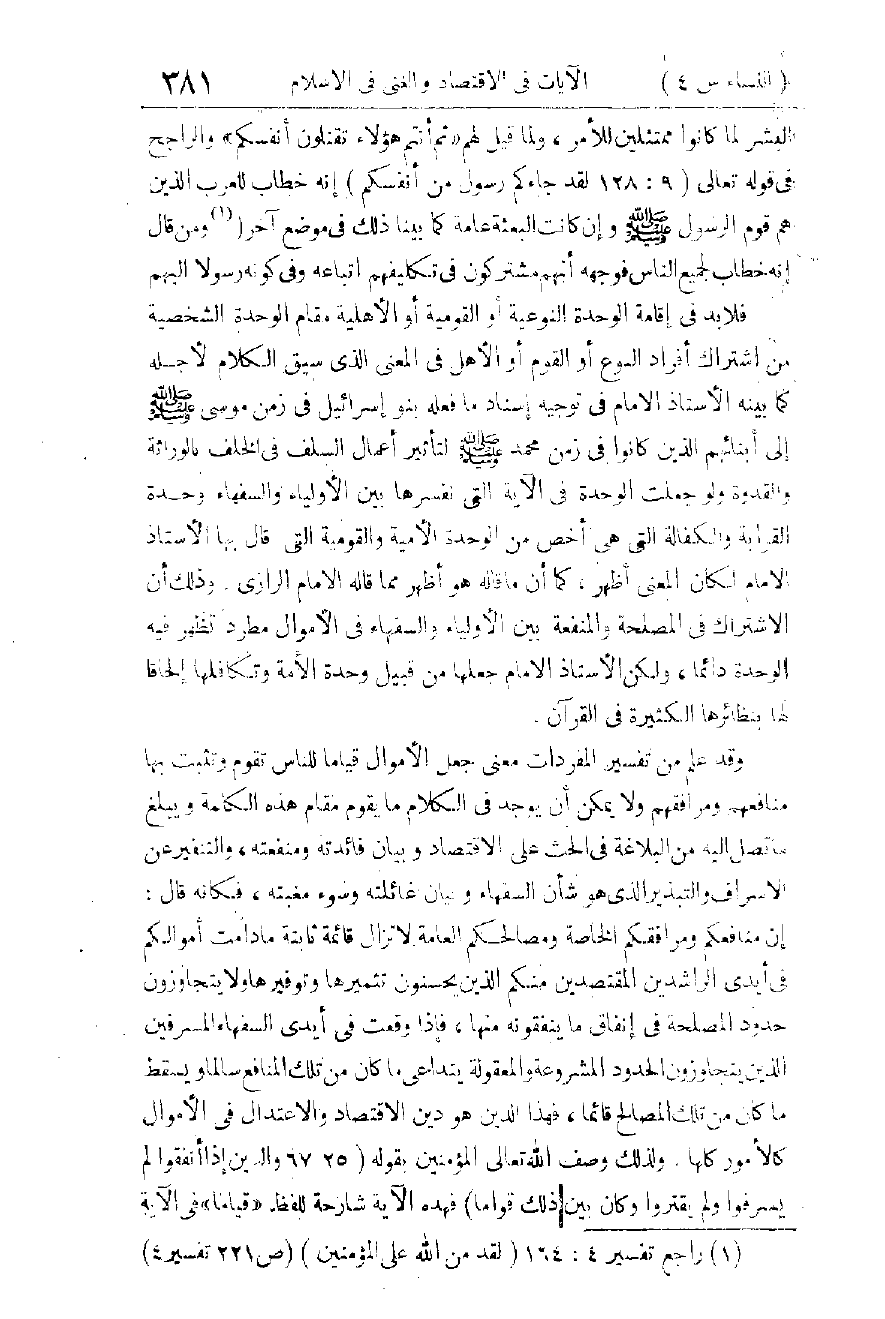 ( النساء س ٤ ) الآيات فى الاقتصاد والغنى فى الاسلام ٣٨١
المفسر لما كانوا ممتثلين للأمر ، ولما قيل لهم «ثم أنتم هؤلاء تقتلون أنفسكم» والراجح
فى قوله تعالى ( ٩ : ١٢٨ لقد جاءكم رسول من أنفسكم ) إنه خطاب للعرب الذين
هم قوم الرسول ﷺ وإن كانت البعثة عامة كما بينا ذلك فى موضع آخر (١) ومن قال
إنه خطاب لجميع الناس فوجهه أنهم مشتركون فى تكليفهم اتباعه وفى كونه رسولا اليهم
فلابد فى إقامة الوحدة النوعية أو القومية أو الأهلية مقام الوحدة الشخصية
من اشتراك أفراد النوع أو القوم أو الأهل فى المعنى الذى سيق الكلام لأجله
كما بينه الأستاذ الامام فى توجيه إسناد ما فعله بنو إسرائيل فى زمن موسى ﷺ
إلى أبنائهم الذين كانوا فى زمن محمد ﷺ لتأثير أعمال السلف فى الخلف بالوراثة
والقدوة ولو جعلت الوحدة فى الآية التى نفسرها بين الأولياء والسفهاء وحدة
القرابة والكفالة التى هى أخص من الوحدة الأمية والقومية التى قال بها الأستاذ
الامام لكان المعنى أظهر ، كما أن ماقاله هو أظهر مما قاله الامام الرازى . وذلك أن
الاشتراك فى المصلحة والمنفعة بين الأولياء والسفهاء فى الأموال مطرد تظهر فيه
الوحدة دائما ، ولكن الأستاذ الامام جعلها من قبيل وحدة الأمة وتكافلها إلحاقا
لها بنظائرها الكثيرة فى القرآن .
وقد علم من تفسير المفردات معنى جعل الأموال قياما للناس تقوم وتثبت بها
منافعهم ومرافقهم ولا يمكن أن يوجد فى الكلام ما يقوم مقام هذه الكلمة ويبلغ
ماتصل اليه من البلاغة فى الحث على الاقتصاد وبيان فائدته ومنفعته ، والتنفير عن
الاسراف والتبذير الذى هو شأن السفهاء وبيان غائلته وسوء مغبته ، فكانه قال :
إن منافعكم ومرافقكم الخاصة ومصالحكم العامة لاتزال قائمة ثابتة مادامت أموالكم
فى أيدى الراشدين المقتصدين منكم الذين يحسنون تثميرها وتوفيرها ولا يتجاوزون
حدود المصلحة فى إنفاق ما ينفقونه منها ، فإذا وقعت فى أيدى السفهاء المسرفين
الذين يتجاوزون الحدود المشروعة والمعقولة يتداعى ما كان من تلك المنافع سالما ويسقط
ما كان من تلك المصالح قائما ، فهذا الدين هو دين الاقتصاد والاعتدال فى الأموال
كالأمور كلها . ولذلك وصف الله تعالى المؤمنين بقوله ( ٢٥ ٦٧ والذين إذا أنفقوا لم
يسرفوا ولم يقتروا وكان بين ذلك قواما ) فهذه الآية شارحة للفظ «قياما» فى الآية
(١) راجع تفسير ٤ : ١٦٤ ( لقد من الله على المؤمنين ) (ص ٢٢١ تفسير ٤)